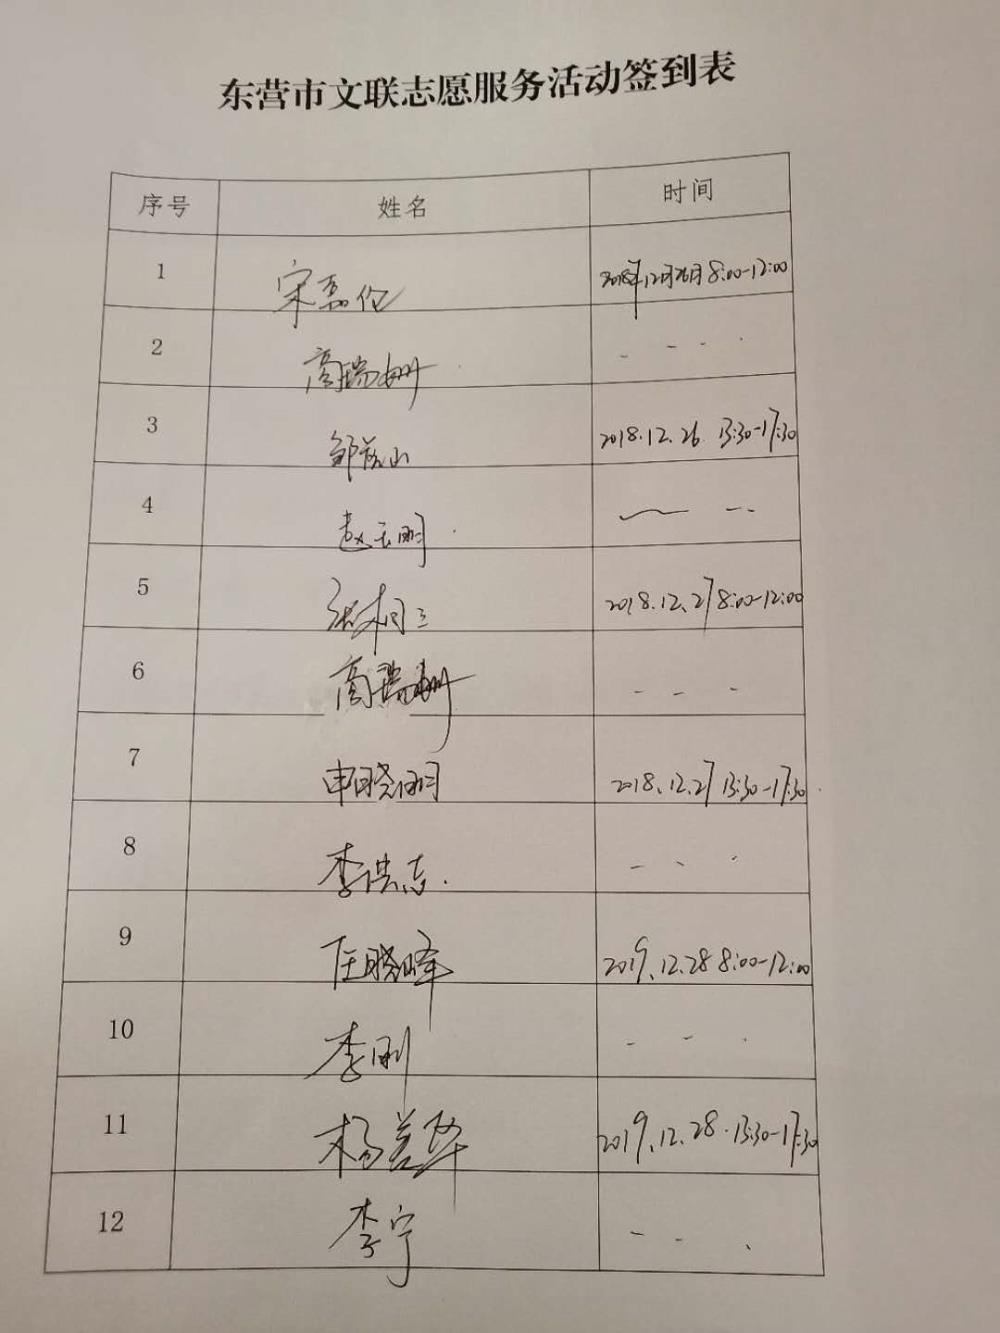 东营市文联志愿服务活动签到表
序号 姓名 时间
1 宋磊伦 2018年12月26日 8:00-12:00
2 高瑞姗
3 邹 山 2018.12.26 13:30-17:30
4 赵云明
5 三 2018.12.27 8:00-12:00
6 高瑞姗
7 申晓明 2018.12.27 13:30-17:30
8 李洪志
9 任晓峰 2019.12.28 8:00-12:00
10 李刚
11 杨 华 2019.12.28 13:30-17:30
12 李宁